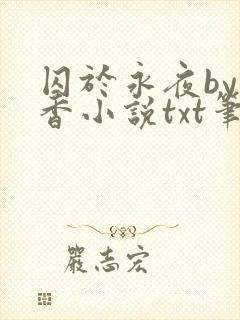 囚於永夜by
香小說txt筆
嚴志宏